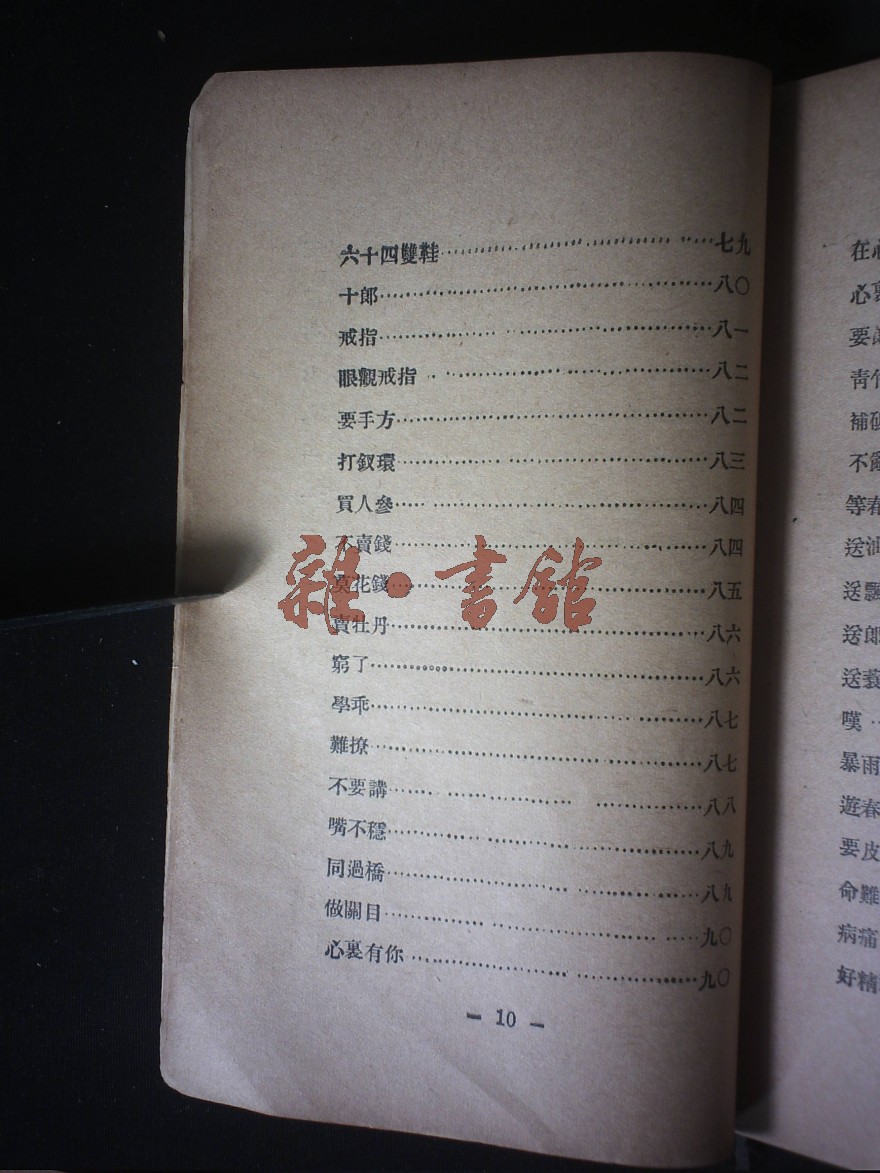 六十四雙鞋……七九
十郎……八〇
戒指……八一
眼觀戒指……八二
要手方……八二
打釵環……八三
買人參……八四
不賣錢……八四
莫花錢……八五
賣牡丹……八六
窮了……八六
學乖……八七
難撩……八七
不要講……八八
嘴不穩……八九
同過橋……八九
做關目……九〇
心裏有你……九〇
– 10 –
雜·書館
在
心
要
靑
補
不
等春
送油
送
送郎
送
嘆
暴雨
遊春
要皮
命難
病痛
好精